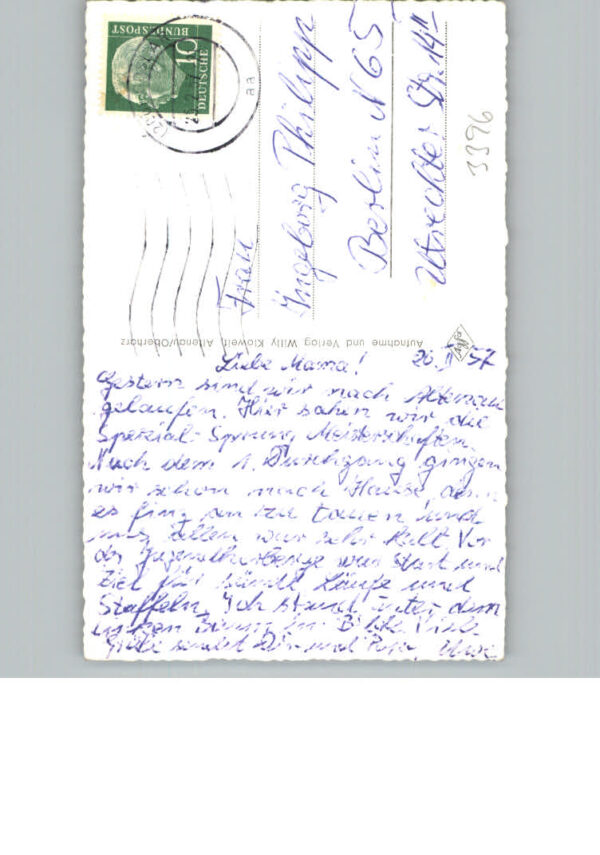 DEUTSCHE
BUNDESPOST
10
aa
Frau
Ingeborg Philipp
Berlin N 65
Utrechter Str. 14 II
3396
Aufnahme und Verlag Willy Klowert, Altenau/Oberharz
Agfa
Liebe Mama! 26. II 57
Gestern sind wir nach Altenau
gelaufen. Hier sahen wir die
Spezial-Sprung Meisterschaften.
Nach dem 1. Durchgang gingen
wir schon nach Hause, denn
es fing an zu tauen und
uns allen war sehr kalt. Vor
der Jugendherberge war Start und
Ziel für sämtl. Läufe und
Staffeln. Ich stand unter dem
linken Baum im Bilde. Viele
Grüße sendet Dir und Papa, Uwe